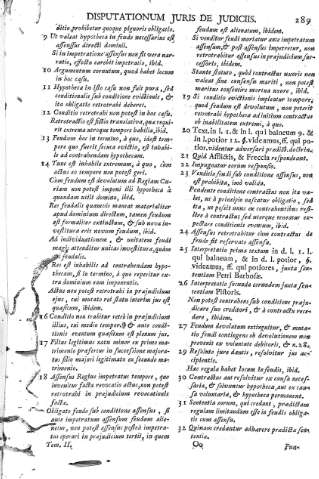 DISPUTATIONUM JURIS DE JUDICIIS.
289
ditio prohibetur quoque pigneris obligatio.
9 Ut valeat hypotheca in feudo necessarius est
assensus directi domini.
Si in impetratione assensus non fit vera nar-
ratio, effectu corruit impetratio, ibid.
10 Argumentum eorumdem, quod habet locum
in hoc casu.
11 Hypotheca in isto casu non fuit pura, sed
conditionalis sub conditione evidentis,
ito obligatio retrotrahi deberet.
12 Conditio retrotrahi non potest in hoc casu.
requi-
rit extrema utroque tempore habilia, ibid.
13 Feudum hoc in termino, à quo, inest tem-
pore quo fuerit secuta evictio, est inhabi-
le ad contrahendam hypothecam.
14 Tunc est inhabile extremum, à quo, cum
actus eo tempore non potest geri.
Cum feudum est devolutum ad Regiam Cu-
riam non potest imponi illi hypotheca à
quondam nulli domino, ibid.
Res feudalis quamvis maneat materialiter
apud dominium directum, tamen feudum
est formaliter extinctum, & sub nova in-
vestitura erit novum feudum, ibid.
Ad individuationem, & unitatem feudi
magis attenditur unitas investiturae, quàm
feudalis.
Res est inhabilis ad contrahendam hypo-
thecam, si in termino, à quo reperitur ex-
tra dominium eam imponentis.
Actus non potest retrotrahi in praejudicium
ejus, cui mutato rei statu interim jus est
quaesitum, ibidem.
16 Conditio non traditur retro in praejudicium
illius, cui medio tempore & ante condi-
tionis eventum quaesitum est firmum jus.
17 Filius legitimus natus minor ex primo ma-
trimonio praefertur in successione majora-
tus filio majori legitimato ex secundo ma-
trimonio.
18 Assensus Regius impetratus tempore, quo
inventitur facta revocatio actus, non potest
retrotrahi in praejudicium revocationis
factae.
Obligato feudo sub conditione assensus, si
ante impetratum assensum feudum alie-
netur, non potest assensus postea impetra-
tus operari in praejudicium tertii, in quem
Tom. II.
feudum est alienatum, ibidem.
Si venditor feudi moriatur ante impetratum
assensum, & post assensus impetretur, non
retrotrahitur assensus in praejudicium suc-
cessoris, ibidem.
Stante statuto, quod contractus mulieris non
valeat sine consensu mariti, non potest
maritus consentire mortua uxore, ibid.
19 Si conditio evictionis impleatur tempore,
quod feudum est devolutum, non poterit
retrotrahi hypotheca ad initium contractus
ob inhabilitatem extremi, à quo.
20 Text. in l. 2. & in l. qui balneum 9. &
in l. potior 11. §. videamus, ff. qui po-
tior. evidentur adversari praedictae doctrinae.
21 Quid Afflictis, & Freccia respondeant.
22 Impugnatur eorum responsio.
23 Venditio feudi sub conditione assensus, non
est prohibita, imò valida.
Pendente conditione contractus non ita va-
let, ut à principio nascatur obligatio, sed
res, ut possit unus ex contrahentibus res-
pectu a contractus, sed uterque tenetur ex-
pectare conditionis eventum, ibid.
24 Assensus retrotrahitur cùm contractus de
feudo fit reservato assensu.
25 Interpretatio prima textuum in d. l. 1. l.
qui balneum, & in D. l. potior, §.
videamus, ff. qui potiores, juxta sen-
tentiam Petri Barbosae.
26 Interpretatio secunda eorumdem juxta sen-
tentiam Pistoris.
Non potest contrahens sub conditione praeju-
dicare suo creditori, & à contractu rece-
dere, ibidem.
27 Feudum devolutum extinguitur, & muta-
tio feudi contingens ob devolutionem non
provenit ex voluntate debitoris, & n. 28.
29 Resoluto jure dantis, resolvitur jus ac-
cipientis.
Haec regula habet locum in feudis, ibid.
30 Contractus aut resolvitur ex causa neces-
saria, & solvuntur hypothecae, aut ex cau-
sa voluntaria, & hypotheca permanent.
31 Sententia eorum, qui credunt, praedictam
regulam limitandam esse in feudis obliga-
tis cum assensu.
32 Quinam credantur adhaerere praedictae sen-
tentiae.
Oo
Fun-